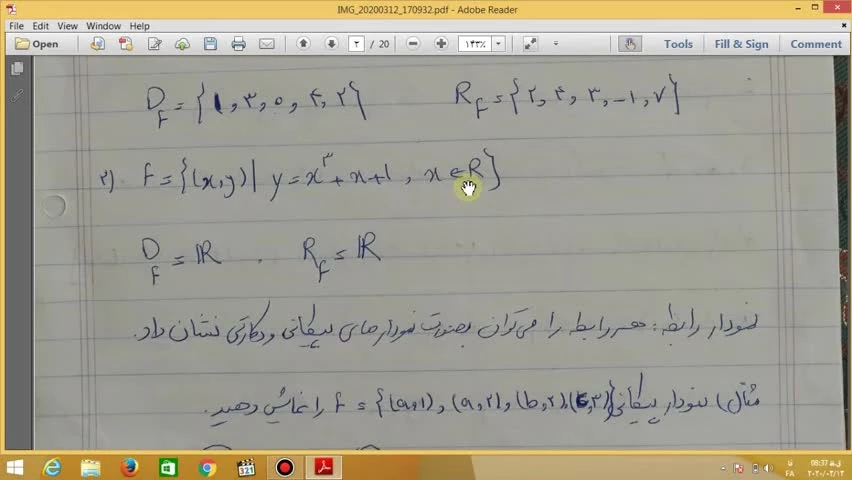 IMG_20200312_170932.pdf - Adobe Reader
File Edit View Window Help
Open ۲ / 20 ۱۴۳% Tools Fill & Sign Comment
D_F = {۱, ۳, ۵, ۴, ۲} R_F = {۲, ۴, ۳, -۱, ۷}
۲) f = {(x,y) | y = x^۳ + x + 1, x ∈ R}
D_F = ℝ . R_F = ℝ
نمودار رابطه: هر رابطه را می‌توان بصورت نمودارهای پیکانی و دکارتی نشان داد.
مثال) نمودار پیکانی f = {(a,1), (a,۲), (b,۲), (c,۳)} را نمایش دهید.
321
FA
08:37 ق.ظ
۲۰۲۰/۰۳/۱۳